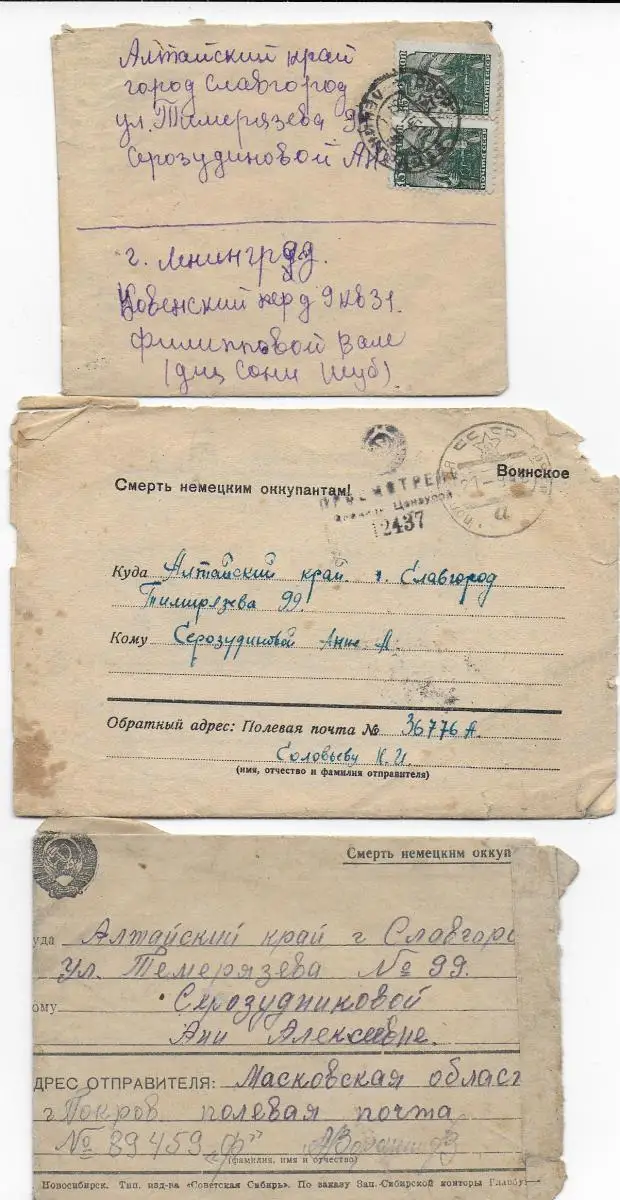 Алтайский край
город Славгород
ул. Тимерязева 99
Серозудиновой Ан
г. Ленинград.
Ковенский пер д 9 кв 31.
Филипповой Вале
(для Сони Шуб)
Смерть немецким оккупантам!
Воинское
ПРОСМОТРЕНО
Военной Цензурой
12437
СССР
Куда Алтайский край. г. Славгород
Тимирязева 99.
Кому Серозудиновой Анне А.
Обратный адрес: Полевая почта № 36776 А.
Соловьеву К. И.
(имя, отчество и фамилия отправителя)
Смерть немецким оккуп
уда Алтайский край г Славгоро
ул. Темерязева № 99.
ому Серозудниковой
Ани Алексевне.
ДРЕС ОТПРАВИТЕЛЯ: Масковская област
г. Покров полевая почта
№ 89459 „Ф"
(фамилия, имя и отчество)
Новосибирск. Тип. изд-ва «Советская Сибирь». По заказу Зап.-Сибирской конторы